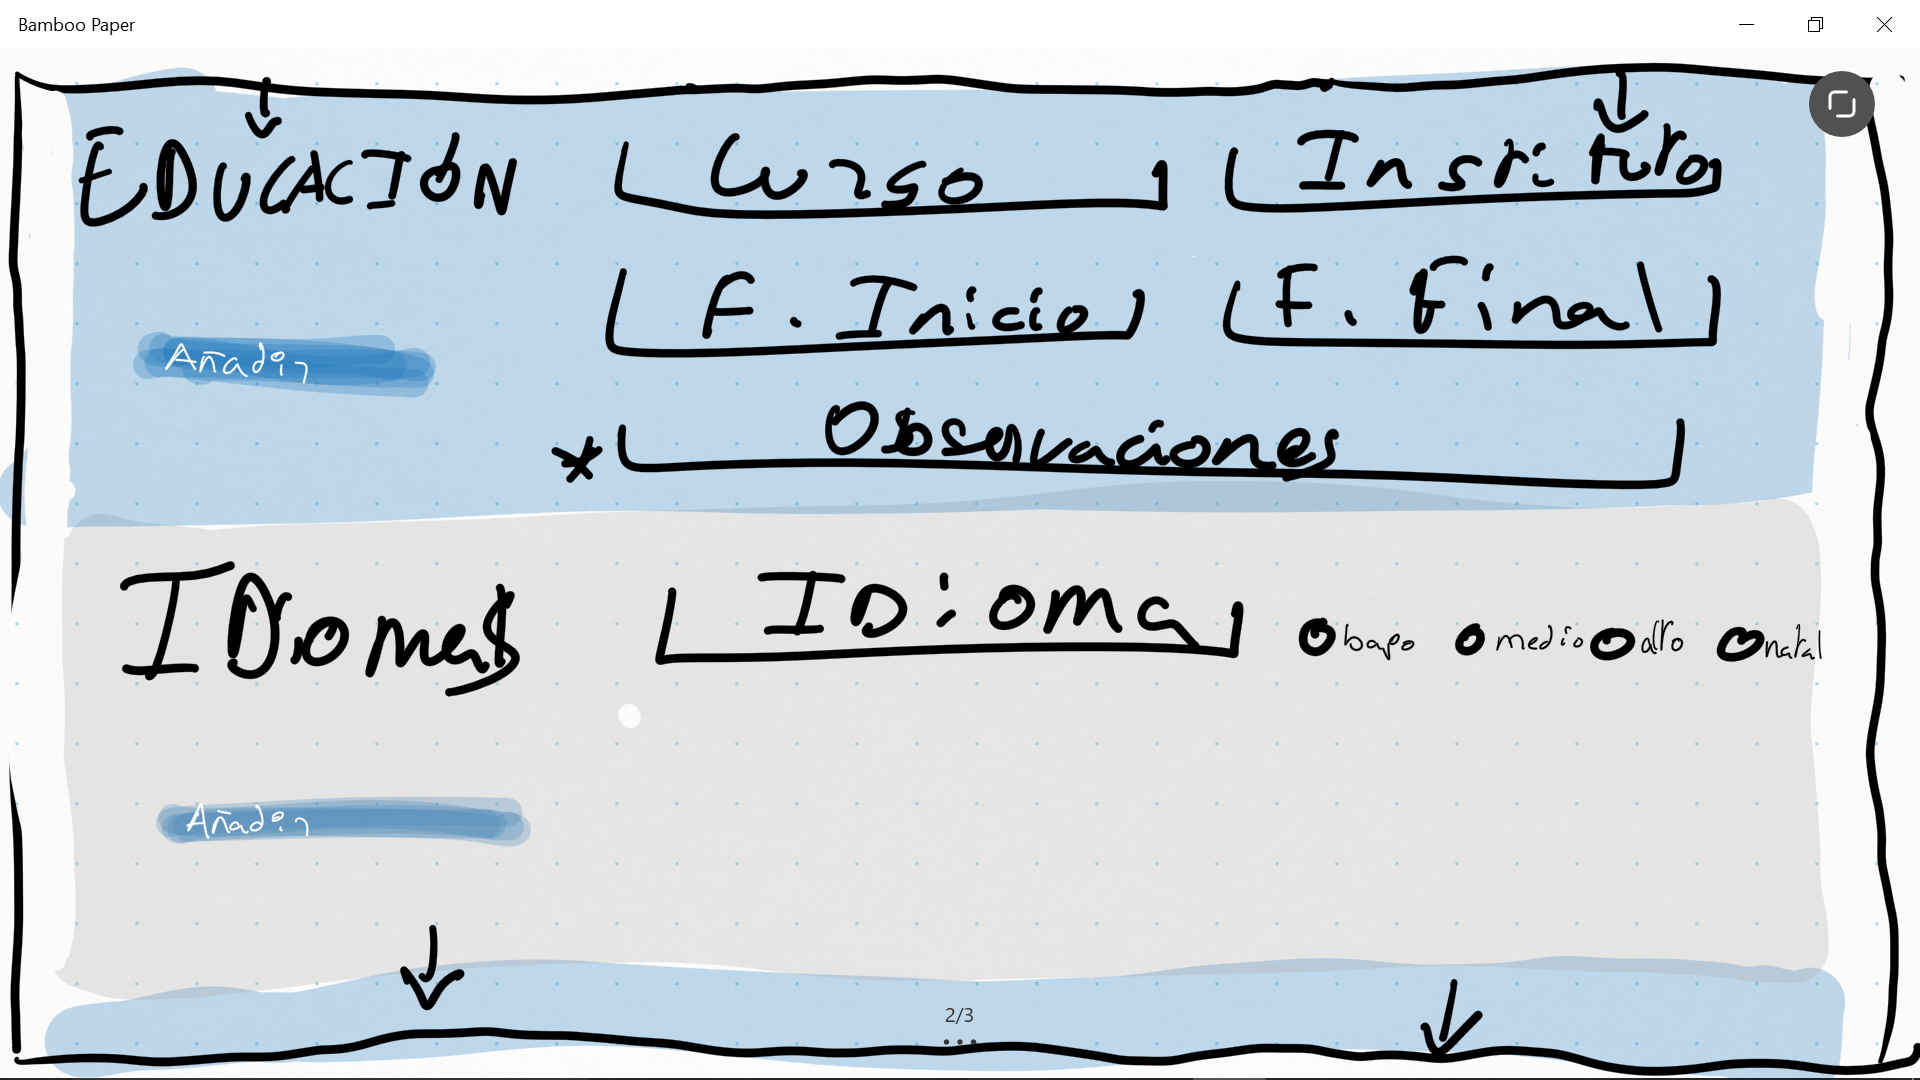 Bamboo Paper
EDUCACIÓN Curso Instituto
F. Inicio F. Final
Añadir
* Observaciones
IDiomas IDioma bajo medio alto natal
Añadir
2/3